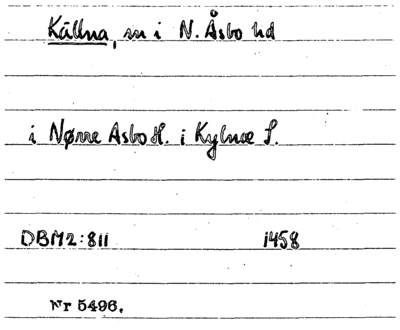 Källna, sn i N. Åsbo hd
i Nørre Asbo H. i Kylnæ S.
DBM2:811 1458
Nr 5496.